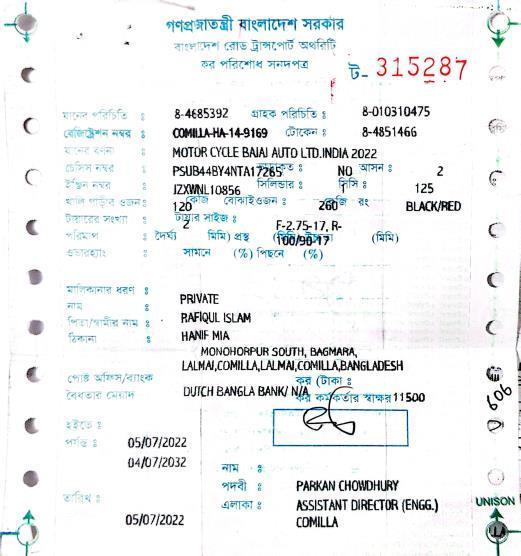 গণপ্রজাতন্ত্রী বাংলাদেশ সরকার
বাংলাদেশ রোড ট্রান্সপোর্ট অথরিটি
কর পরিশোধ সনদপত্র
ট- 315287
যানের পরিচিতি : 8-4685392 গ্রাহক পরিচিতি : 8-010310475
রেজিস্ট্রেশন নম্বর : COMILLA-HA-14-9169 টোকেন : 8-4851466
যানের বর্ণনা : MOTOR CYCLE BAJAJ AUTO LTD.INDIA 2022
চেসিস নম্বর : PSUB44BY4NTA17265 NO আসন : 2
ইঞ্জিন নম্বর : JZXWNL10856 সিলিন্ডার : 1 সিসি : 125
খালি গাড়ীর ওজন: 120 কেজি বোঝাইওজন : 260 কেজি রং BLACK/RED
টায়ারের সংখ্যা : 2 টায়ার সাইজ : F-2.75-17, R-
পরিমাপ : দৈর্ঘ্য মিমি) প্রস্থ (মিমি) 100/90-17 (মিমি)
ওভারহ্যাং : সামনে (%) পিছনে (%)
মালিকানার ধরণ : PRIVATE
নাম : RAFIQUL ISLAM
পিতা/স্বামীর নাম : HANIF MIA
ঠিকানা : MONOHORPUR SOUTH, BAGMARA,
LALMAI,COMILLA,LALMAI,COMILLA,BANGLADESH
পোষ্ট অফিস/ব্যাংক : DUTCH BANGLA BANK/ N/A কর (টাকা :
বৈধতার মেয়াদ কর কর্মকর্তার স্বাক্ষর 11500
হইতে :
পর্যন্ত : 05/07/2022
04/07/2032
নাম :
পদবী : PARKAN CHOWDHURY
তারিখ : এলাকা : ASSISTANT DIRECTOR (ENGG.)
05/07/2022 COMILLA
UNISON
606